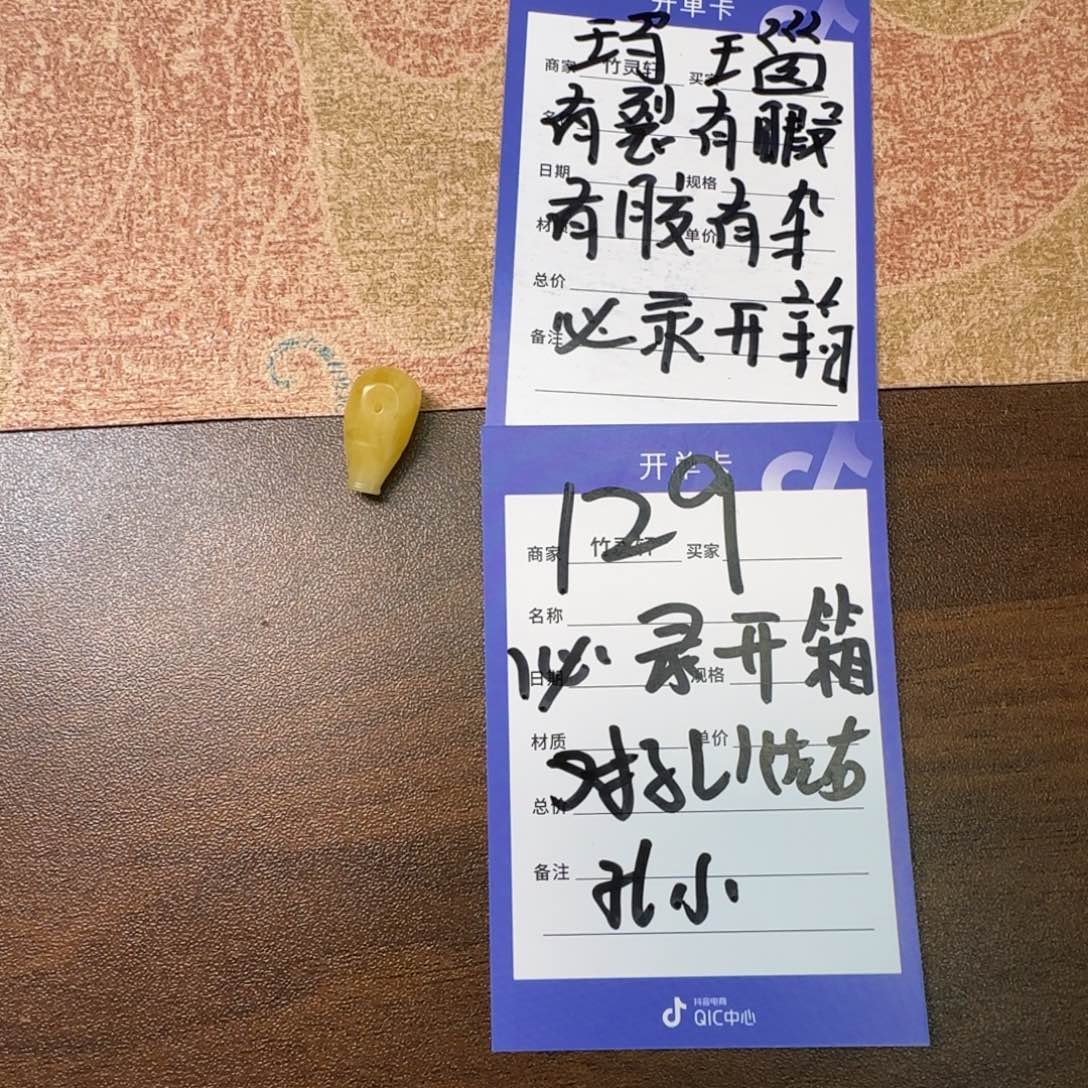 开单卡
玛瑙
商家 竹灵轩 买家
有裂有暇
日期 规格
有胶有杂
材质 单价
总价
必录开箱
备注
开单卡
129
商家 竹灵轩 买家
名称
必录开箱
日期 规格
材质 单价
对孔
总价
备注
孔小
抖音电商
QIC中心